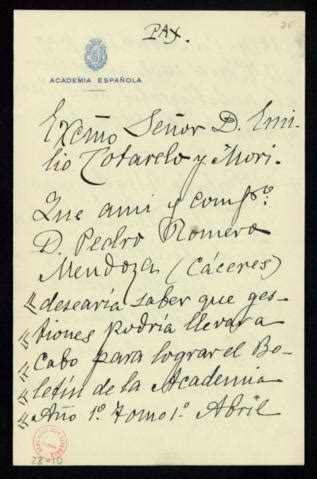 PAX.
26
ACADEMIA ESPAÑOLA
Excmo Señor D. Emi-
lio Cotarelo y Mori.
Que ami y compº.
D. Pedro Romero
Mendoza (Cáceres)
«desearía saber que ges-
«tiones podría llevar a
«cabo para lograr el Bo-
«letín de la Academia
«Año 1º. Tomo 1º. Abril
28-10